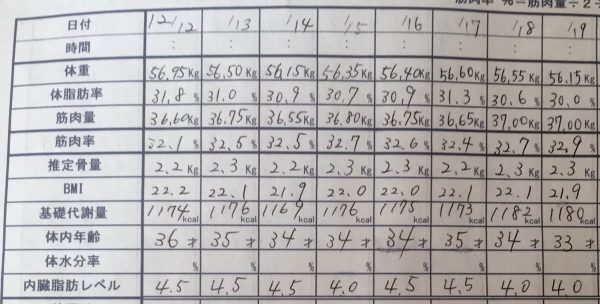 筋肉率 %=筋肉量÷2÷
日付 12/12 /13 /14 /15 /16 /17 /18 /19
時間 : : : : : : : :
体重 56.95Kg 56.50Kg 56.15Kg 56.35Kg 56.40Kg 56.60Kg 56.55Kg 56.15Kg
体脂肪率 31.8% 31.0% 30.9% 30.7% 30.9% 31.3% 30.6% 30.0%
筋肉量 36.60Kg 36.75Kg 36.55Kg 36.80Kg 36.75Kg 36.65Kg 37.00Kg 37.00Kg
筋肉率 32.1% 32.5% 32.5% 32.7% 32.6% 32.4% 32.7% 32.9%
推定骨量 2.2Kg 2.3Kg 2.2Kg 2.3Kg 2.3Kg 2.2Kg 2.3Kg 2.3Kg
BMI 22.2 22.1 21.9 22.0 22.0 22.1 22.1 21.9
基礎代謝量 1174kcal 1176kcal 1169kcal 1176kcal 1175kcal 1173kcal 1182kcal 1180kcal
体内年齢 36才 35才 34才 34才 34才 35才 34才 33才
体水分率 % % % % % % % %
内臓脂肪レベル 4.5 4.5 4.5 4.0 4.5 4.5 4.0 4.0